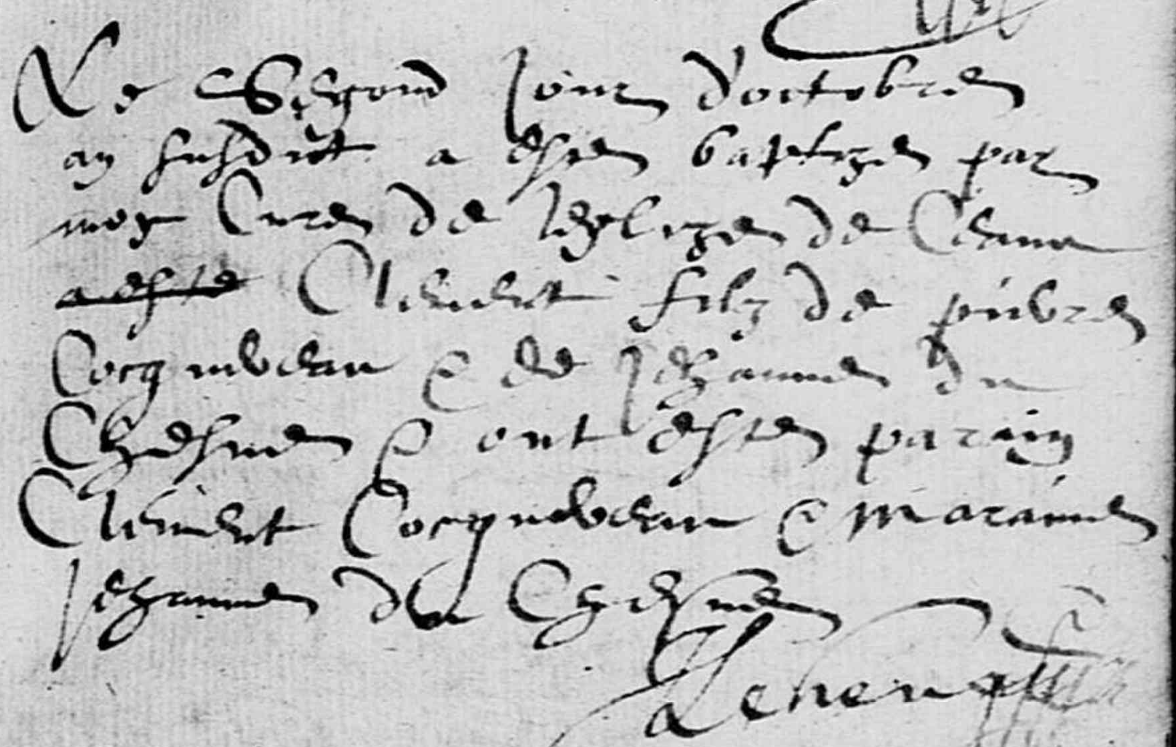 Le Segond Jour d'octobre
an susdict a este baptize par
moy Cure de leglize de Ceaux
a este Clement filz de pierre
Cocquereau & de Jehanne du
Chesne & ont este parain
Clement Cocquereau & maraine
Jehanne du Chesne